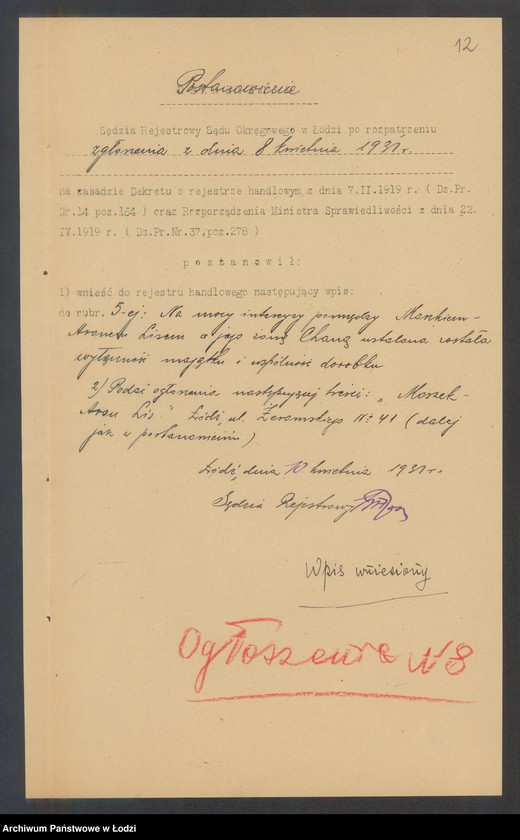 12
Postanowienie
Sędzia Rejestrowy Sądu Okręgowego w Łodzi po rozpatrzeniu
zgłoszenia z dnia 8 kwietnia 1931 r.
na zasadzie Dekretu o rejestrze handlowym z dnia 7.II.1919 r. ( Dz.Pr.
Nr.14 poz.164 ) oraz Rozporządzenia Ministra Sprawiedliwości z dnia 22.
IV.1919 r. ( Dz.Pr.Nr.37,poz.276 )
postanowił:
1) wnieść do rejestru handlowego następujący wpis:
do rubr. 5-ej: Na mocy intercyzy pomiędzy Moszkiem-
Aronem Lisem a jego żoną Chaną ustalona została
wyłączność majątku i wspólność dorobku
2) Podać ogłoszenie następującej treści: „Moszek-
Aron Lis" Łódź, ul. Żeromskiego № 41 (dalej
jak w postanowieniu)
Łódź, dnia 10 kwietnia 1931 r.
Sędzia Rejestrowy
Wpis wniesiony
Ogłoszenie № 8
Archiwum Państwowe w Łodzi